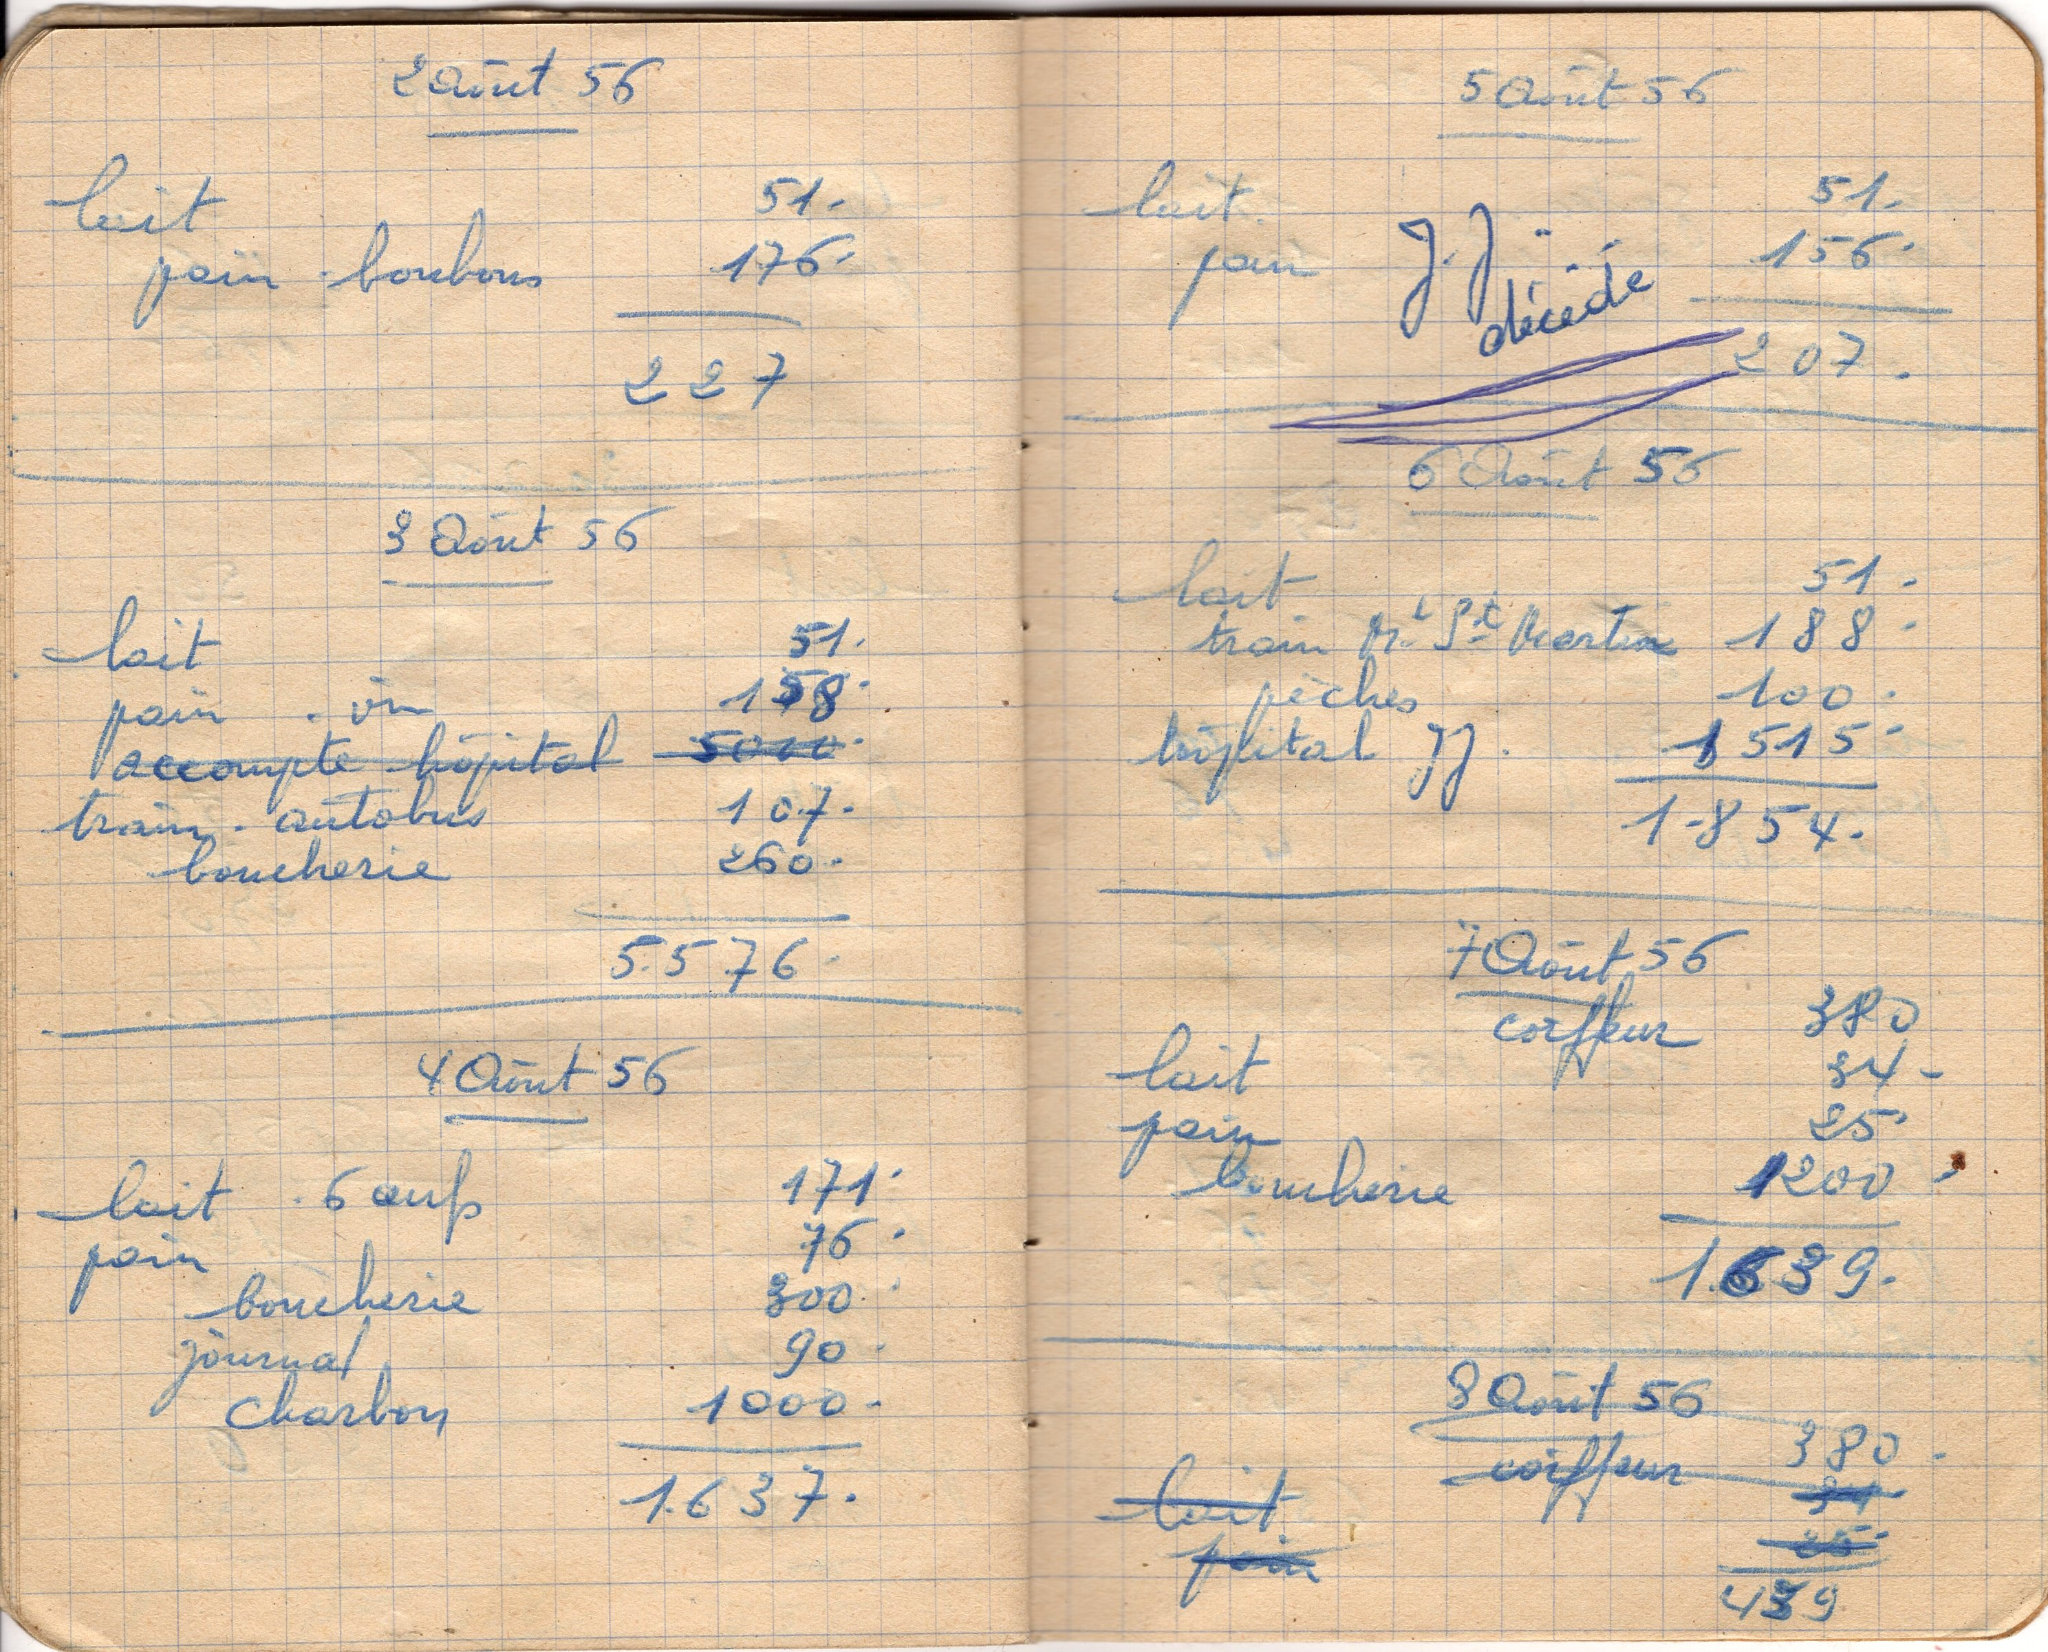 2 Août 56
lait 51.
pain . bonbons 176.
227
3 Août 56
lait 51.
pain . vin 158.
accompte hôpital 5000.
train . autobus 107.
boucherie 260.
5.576.
4 Août 56
lait . 6 œufs 171.
pain 76.
boucherie 300.
journal 90.
charbon 1000.
1.637.
5 Août 56
lait. 51.
pain 156.
J.J
décédé
207.
6 Août 56
lait. 51.
train Mt St Martin 188.
pêches 100.
hôpital JJ. 1515.
1.854.
7 Août 56
coiffeur 380
lait 34.
pain 25.
boucherie 1200.
1.639.
8 Août 56
coiffeur 380.
lait. 34
pain 25.
439